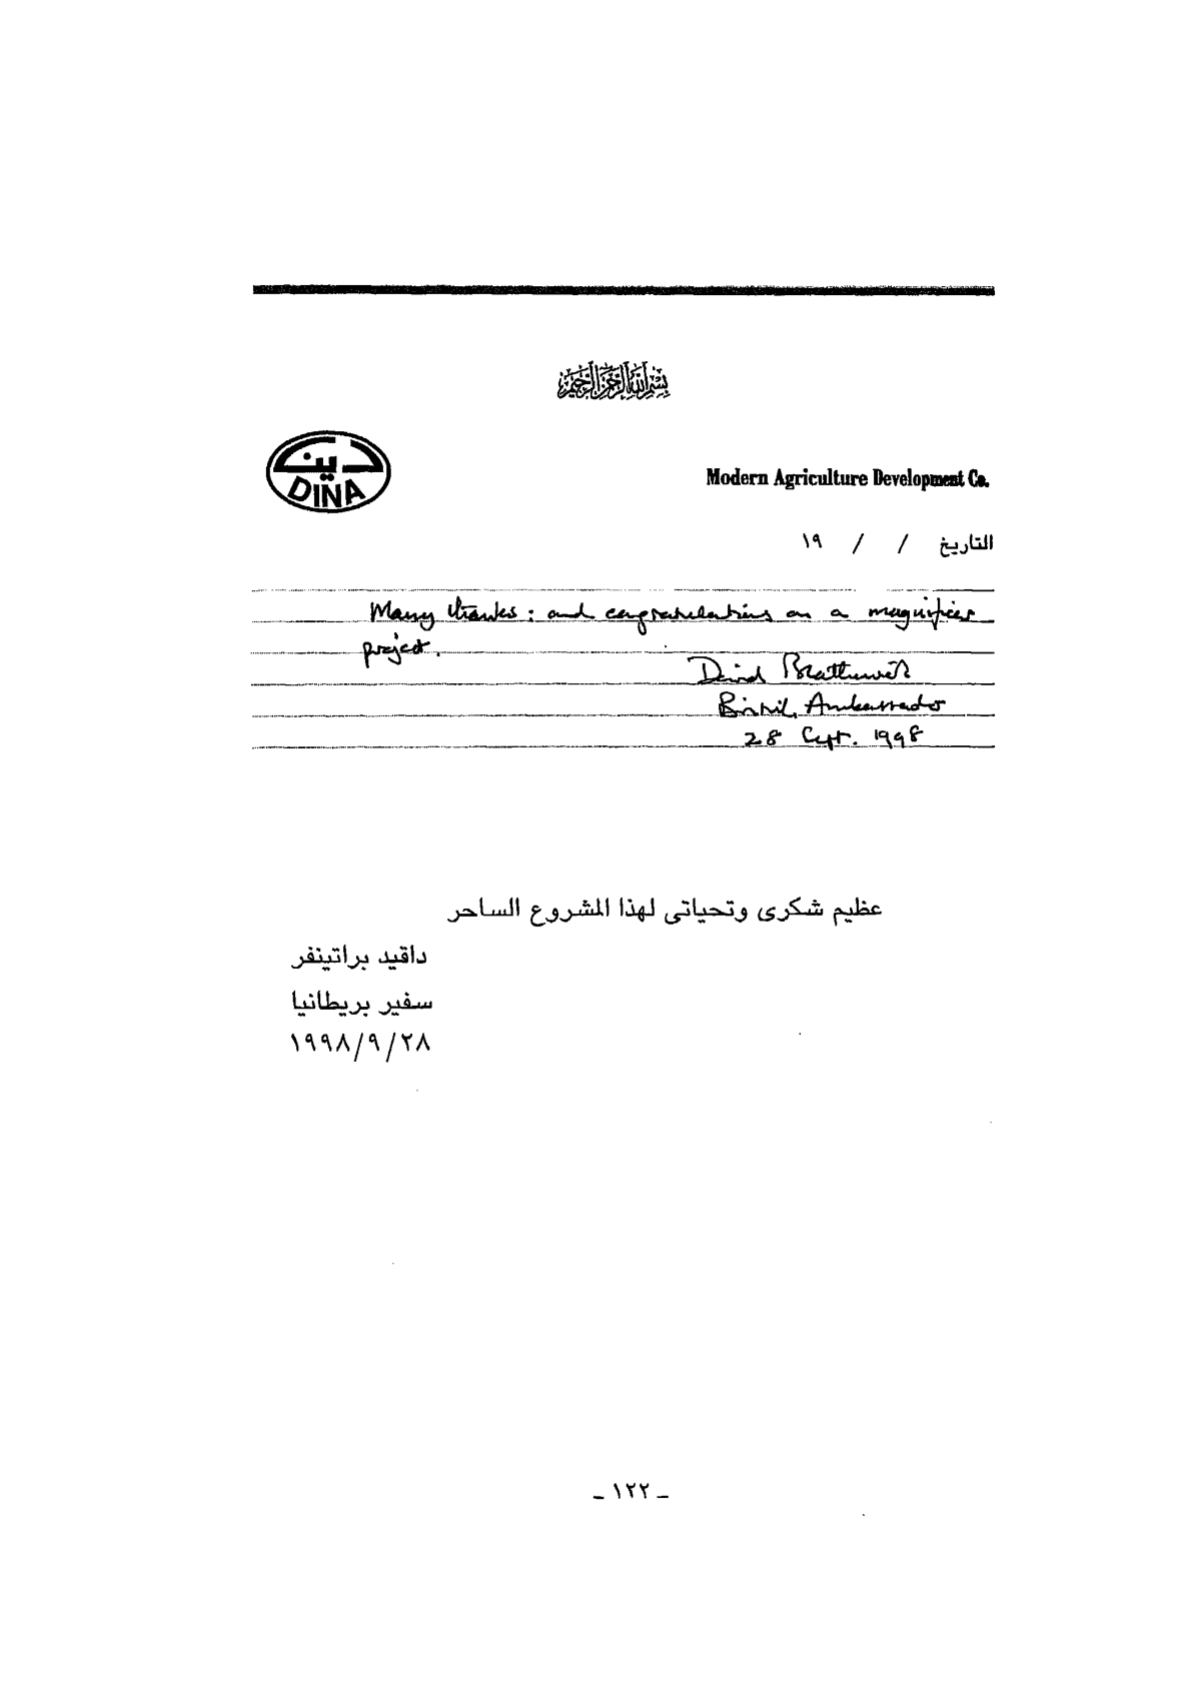 بسم الله الرحمن الرحيم
دينا
DINA
Modern Agriculture Development Co.
التاريخ / / ١٩
Many thanks: and congratulations on a magnificent
project.
David
British Ambassador
28 Sept. 1998
عظيم شكرى وتحياتى لهذا المشروع الساحر
داڤيد براتينفر
سفير بريطانيا
١٩٩٨/٩/٢٨
ـ ١٢٢ ـ